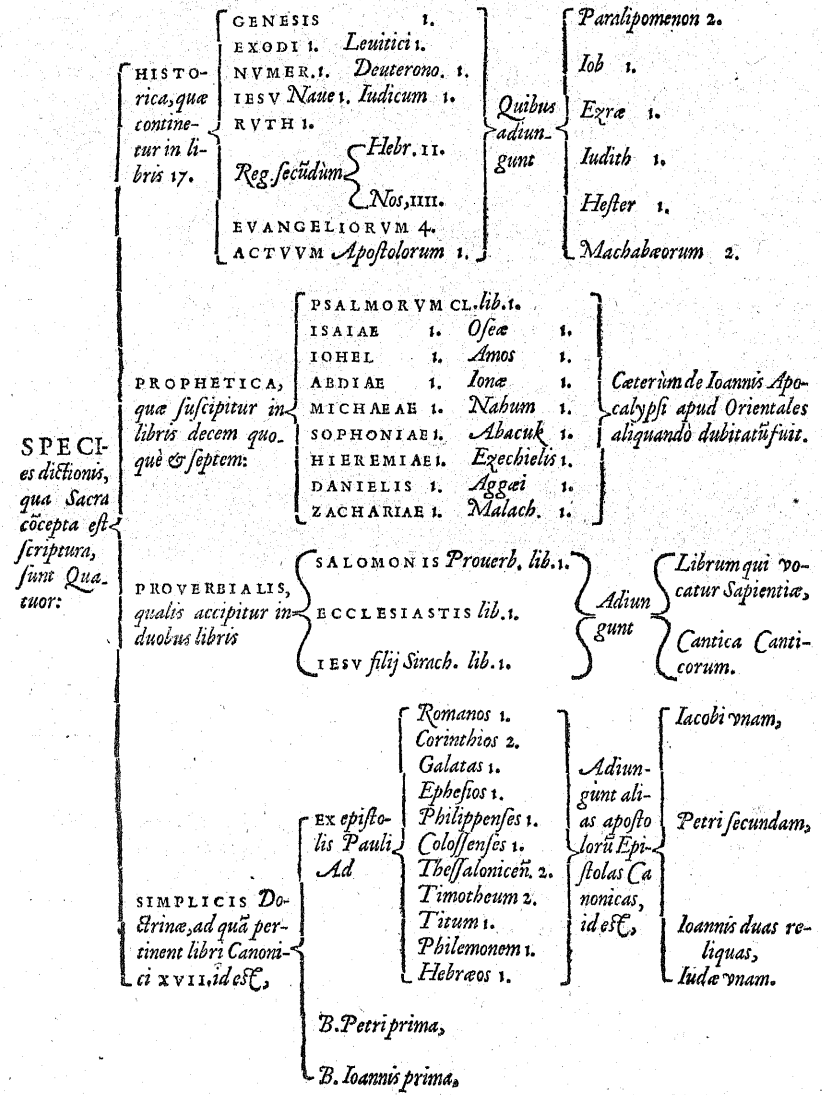 SPECI-
es dictionis,
qua Sacra
cõcepta est
scriptura,
sunt Qua-
tuor:
HISTO-
rica, quæ
contine-
tur in li-
bris 17.
GENESIS 1.
EXODI 1. Leuitici 1.
NVMER. 1. Deuterono. 1.
IESV Naue 1. Iudicum 1.
RVTH 1.
Reg. secũdùm
Hebr. II.
Nos, IIII.
EVANGELIORVM 4.
ACTVVM Apostolorum 1.
Quibus
adiun-
gunt
Paralipomenon 2.
Iob 1.
Ezræ 1.
Iudith 1.
Hester 1.
Machabæorum 2.
PROPHETICA,
quæ suscipitur in
libris decem quo-
què & septem:
PSALMORVM CL. lib. 1.
ISAIAE 1. Oseæ 1.
IOHEL 1. Amos 1.
ABDIAE 1. Ionæ 1.
MICHAEAE 1. Nahum 1.
SOPHONIAE 1. Abacuk 1.
HIEREMIAE 1. Ezechielis 1.
DANIELIS 1. Aggæi 1.
ZACHARIAE 1. Malach. 1.
Cæterùm de Ioannis Apo-
calypsi apud Orientales
aliquandò dubitatũ fuit.
PROVERBIALIS,
qualis accipitur in
duobus libris
SALOMONIS Prouerb. lib. 1.
ECCLESIASTIS lib. 1.
IESV filij Sirach. lib. 1.
Adiun
gunt
Librum qui vo-
catur Sapientiæ,
Cantica Canti-
corum.
SIMPLICIS Do-
ctrinæ, ad quã per-
tinent libri Canoni-
ci XVII. id est,
EX episto-
lis Pauli
Ad
Romanos 1.
Corinthios 2.
Galatas 1.
Ephesios 1.
Philippenses 1.
Colossenses 1.
Thessaloniceñ. 2.
Timotheum 2.
Titum 1.
Philemonem 1.
Hebræos 1.
Adiun-
gunt ali-
as aposto
lorũ Epi-
stolas Ca
nonicas,
id est,
Iacobi vnam,
Petri secundam,
Ioannis duas re-
liquas,
Iudæ vnam.
B. Petri prima,
B. Ioannis prima,